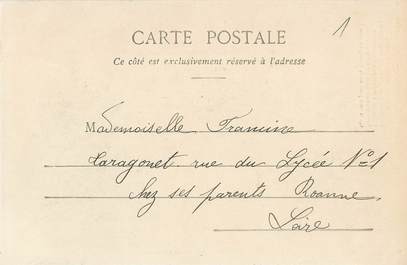 1
CARTE POSTALE
Ce côté est exclusivement réservé à l'adresse
Mademoiselle Francine
Taragonet rue du Lycée N=1
chez ses parents Roanne
Loire